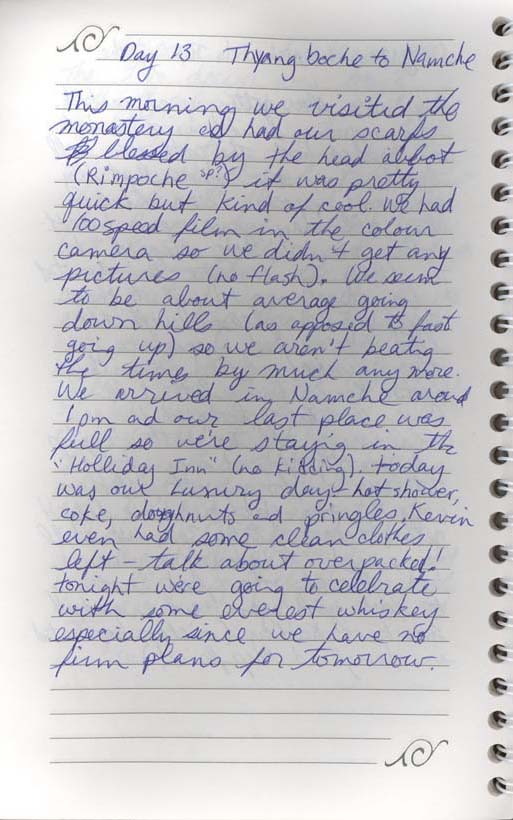 Day 13 Thyangboche to Namche
This morning we visited the
monastery ad had our scarfs
blessed by the head abbot
(Rimpoche sp?) it was pretty
quick but kind of cool. We had
100 speed film in the colour
camera so we didn't get any
pictures (no flash). We seem
to be about average going
down hills (as opposed to fast
going up) so we aren't beatig
the times by much any more.
We arrived in Namche aroud
1pm ad our last place was
full so we're stayig in the
"Holliday Inn" (no kidding). today
was our Luxury day - hot shower,
coke, doughnuts ad pringles, Kevin
even had some clean clothes
left - talk about overpacked!
tonight we're going to celebrate
with some everest whiskey
especially since we have no
firm plans for tomorrow.